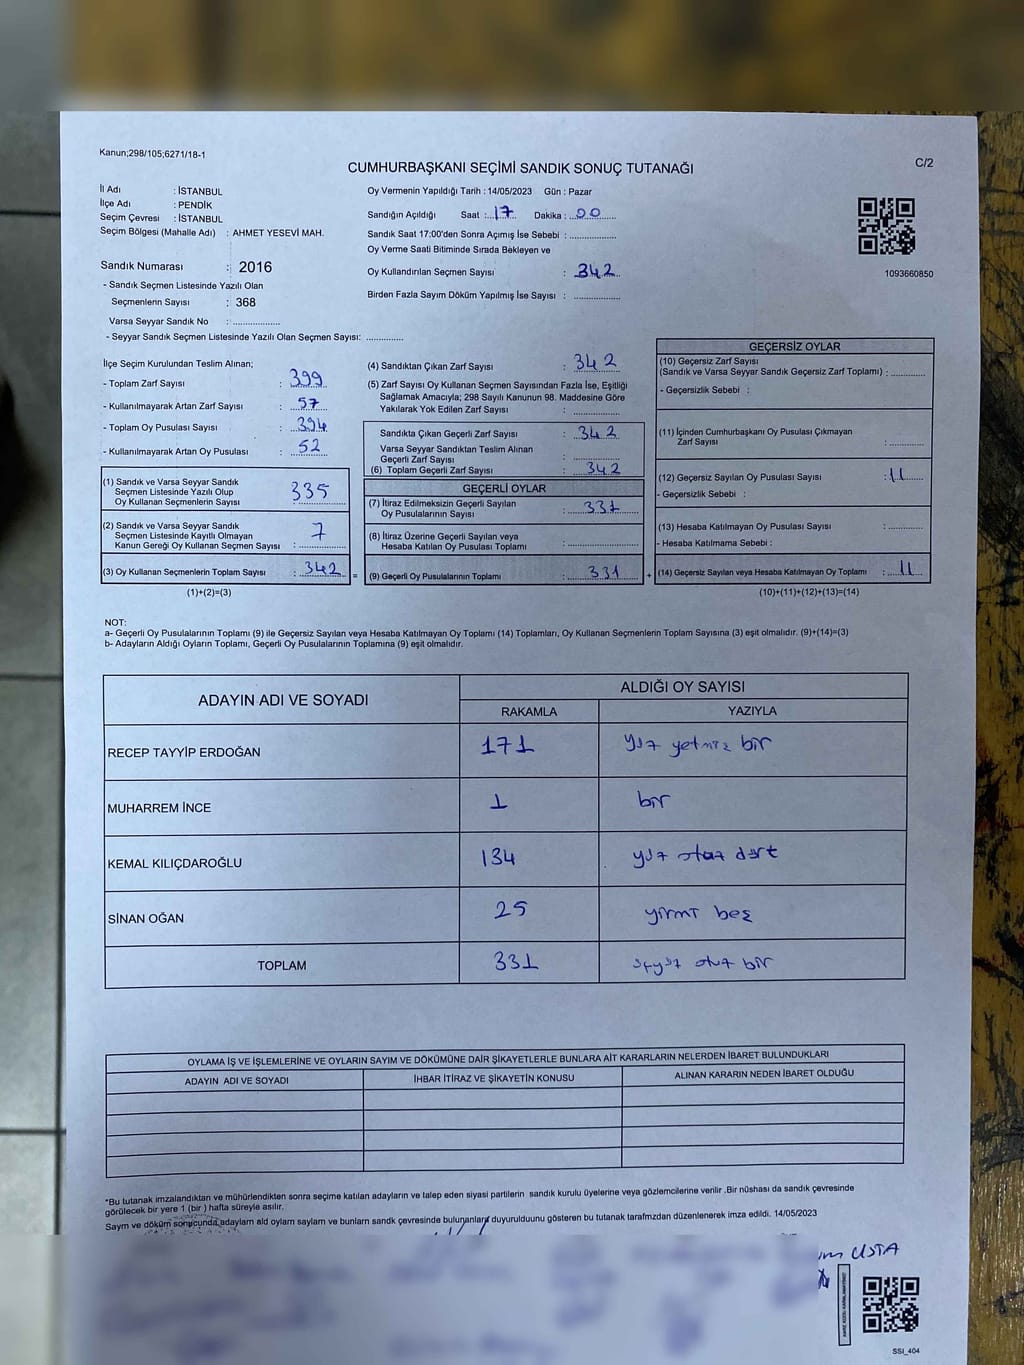 Kanun;298/105;6271/18-1
CUMHURBAŞKANI SEÇİMİ SANDIK SONUÇ TUTANAĞI
C/2
İl Adı : İSTANBUL
İlçe Adı : PENDİK
Seçim Çevresi : İSTANBUL
Seçim Bölgesi (Mahalle Adı) : AHMET YESEVİ MAH.
Sandık Numarası : 2016
- Sandık Seçmen Listesinde Yazılı Olan
Seçmenlerin Sayısı : 368
Varsa Seyyar Sandık No : ..................
- Seyyar Sandık Seçmen Listesinde Yazılı Olan Seçmen Sayısı: ..............
Oy Vermenin Yapıldığı Tarih : 14/05/2023 Gün : Pazar
Sandığın Açıldığı Saat :..17 Dakika :..00
Sandık Saat 17:00'den Sonra Açımış İse Sebebi : ................
Oy Verme Saati Bitiminde Sırada Bekleyen ve
Oy Kullandırılan Seçmen Sayısı : 342
Birden Fazla Sayım Döküm Yapılmış İse Sayısı : ................
1093660850
İlçe Seçim Kurulundan Teslim Alınan;
- Toplam Zarf Sayısı : 399
- Kullanılmayarak Artan Zarf Sayısı : 57
- Toplam Oy Pusulası Sayısı : 394
- Kullanılmayarak Artan Oy Pusulası : 52
(1) Sandık ve Varsa Seyyar Sandık
Seçmen Listesinde Yazılı Olup
Oy Kullanan Seçmenlerin Sayısı : 335
(2) Sandık ve Varsa Seyyar Sandık
Seçmen Listesinde Kayıtlı Olmayan
Kanun Gereği Oy Kullanan Seçmen Sayısı : 7
(3) Oy Kullanan Seçmenlerin Toplam Sayısı : 342 =
(1)+(2)=(3)
(4) Sandıktan Çıkan Zarf Sayısı : 342
(5) Zarf Sayısı Oy Kullanan Seçmen Sayısından Fazla İse, Eşitliği
Sağlamak Amacıyla; 298 Sayılı Kanunun 98. Maddesine Göre
Yakılarak Yok Edilen Zarf Sayısı : ................
Sandıkta Çıkan Geçerli Zarf Sayısı : 342
Varsa Seyyar Sandıktan Teslim Alınan
Geçerli Zarf Sayısı : ................
(6) Toplam Geçerli Zarf Sayısı : 342
GEÇERLİ OYLAR
(7) İtiraz Edilmeksizin Geçerli Sayılan
Oy Pusulalarının Sayısı : 331
(8) İtiraz Üzerine Geçerli Sayılan veya
Hesaba Katılan Oy Pusulası Toplamı : ................
(9) Geçerli Oy Pusulalarının Toplamı : 331 +
GEÇERSİZ OYLAR
(10) Geçersiz Zarf Sayısı
(Sandık ve Varsa Seyyar Sandık Geçersiz Zarf Toplamı) : ............
- Geçersizlik Sebebi :
(11) İçinden Cumhurbaşkanı Oy Pusulası Çıkmayan
Zarf Sayısı : ............
(12) Geçersiz Sayılan Oy Pusulası Sayısı : 11
- Geçersizlik Sebebi :
(13) Hesaba Katılmayan Oy Pusulası Sayısı : ............
- Hesaba Katılmama Sebebi :
(14) Geçersiz Sayılan veya Hesaba Katılmayan Oy Toplamı : 11
(10)+(11)+(12)+(13)=(14)
NOT:
a- Geçerli Oy Pusulalarının Toplamı (9) ile Geçersiz Sayılan veya Hesaba Katılmayan Oy Toplamı (14) Toplamları, Oy Kullanan Seçmenlerin Toplam Sayısına (3) eşit olmalıdır. (9)+(14)=(3)
b- Adayların Aldığı Oyların Toplamı, Geçerli Oy Pusulalarının Toplamına (9) eşit olmalıdır.
ADAYIN ADI VE SOYADI ALDIĞI OY SAYISI
RAKAMLA YAZIYLA
RECEP TAYYİP ERDOĞAN 171 yüz yetmiş bir
MUHARREM İNCE 1 bir
KEMAL KILIÇDAROĞLU 134 yüz otuz dört
SİNAN OĞAN 25 yirmi beş
TOPLAM 331 üçyüz otuz bir
OYLAMA İŞ VE İŞLEMLERİNE VE OYLARIN SAYIM VE DÖKÜMÜNE DAİR ŞİKAYETLERLE BUNLARA AİT KARARLARIN NELERDEN İBARET BULUNDUKLARI
ADAYIN ADI VE SOYADI İHBAR İTİRAZ VE ŞİKAYETİN KONUSU ALINAN KARARIN NEDEN İBARET OLDUĞU
*Bu tutanak imzalandıktan ve mühürlendikten sonra seçime katılan adayların ve talep eden siyasi partilerin sandık kurulu üyelerine veya gözlemcilerine verilir .Bir nüshası da sandık çevresinde
görülecek bir yere 1 (bir ) hafta süreyle asılır.
Sayım ve döküm sonucunda,adayların ald oyların sayıları ve bunların sandk çevresinde bulunanlara duyurulduunu gösteren bu tutanak tarafmzdan düzenlenerek imza edildi. 14/05/2023
USTA
SSİ_404